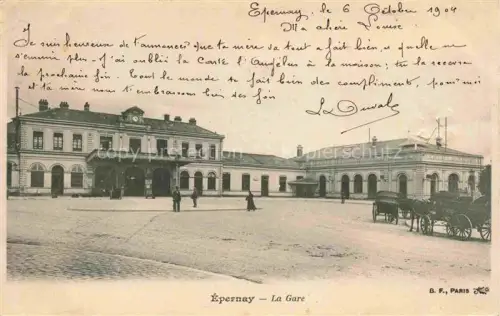 Epernay, le 6 Octobre 1904
Ma chère Louise
Je suis heureuse de t'annoncer que ta mère va tout à fait bien, et qu'elle ne
s'ennuie plus. J'ai oublié la Carte l'Angélus à la maison; tu la recevras
la prochaine fois. Tout le monde te fait bien des compliments, pour moi
et ta mère nous t'embrassons bien des fois
L. Duvale
Épernay — La Gare
B. F., PARIS